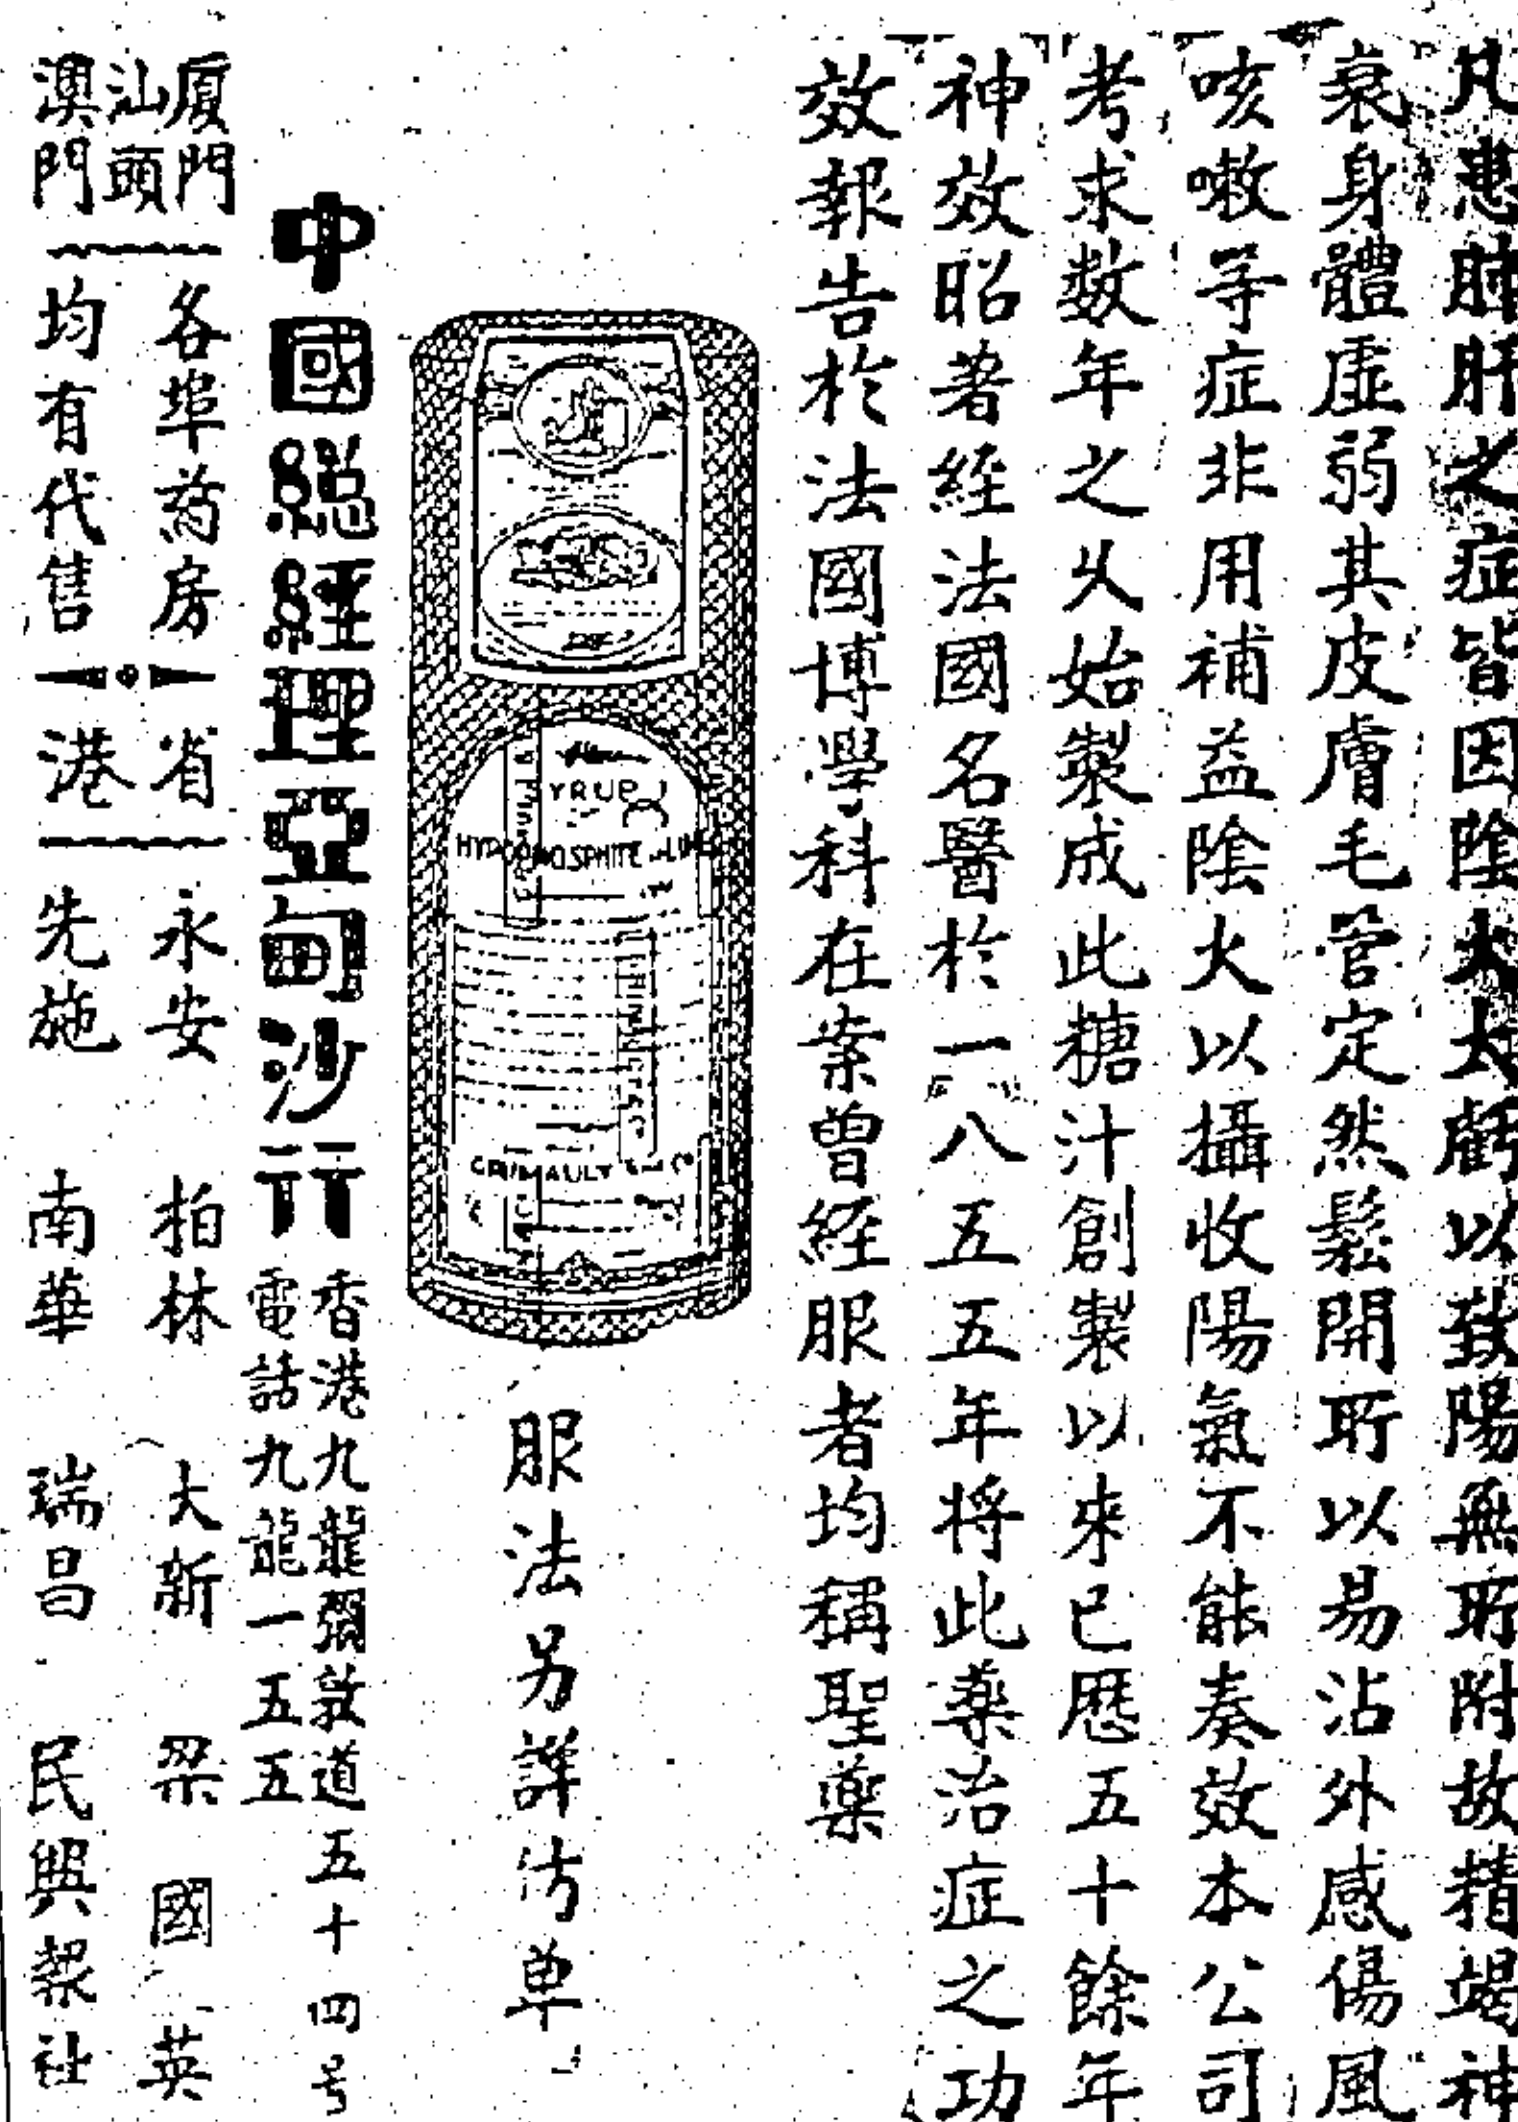 凡患肺肝之症皆因陰火太虧以致陽無所附故精竭神
衰身體虛弱其皮膚毛管定然鬆開所以易沾外感傷風
咳嗽等症非用補益陰火以攝收陽氣不能奏效本公司
考求数年之久始製成此糖汁創製以來已歷五十餘年
神效昭著經法國名醫於一八五五年将此藥治症之功
效報告於法國博學科在案曾経服者均稱聖藥
服法另詳仿单
SYRUP
HYPOPHOSPHITE OF LIME
GRIMAULT & Co
中國総經理亞甸沙行
香港九龍彌敦道五十四号
電話九龍一五五
廈門
汕頭
澳門
各埠葯房
均有代售
省
港
永安 柏林 大新 梁國英
先施 南華 瑞昌 民興葯社